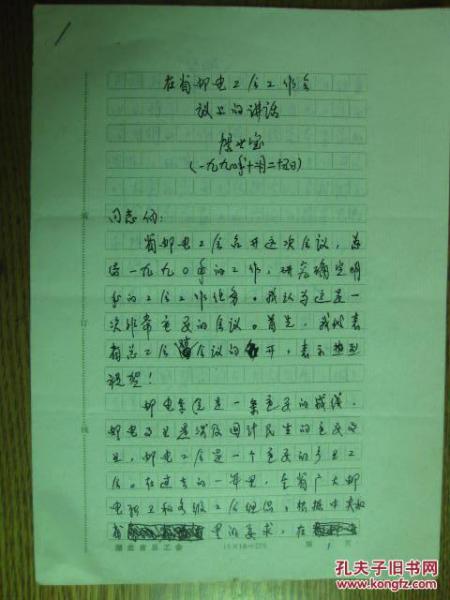 1
在省邮电工会工作会
议上的讲话
(一九九〇年十一月二十五日)
同志们:
省邮电工会召开这次会议,总
结一九九〇年的工作,研究确定明
年的工会工作任务。我认为这是一
次非常重要的会议。首先,我代表
省总工会 会议的召开,表示热烈
祝贺!
邮电系统是一条重要的战线。
邮电事业是涉及国计民生的重要事
业,邮电工会是一个重要的产业工
会。在过去的一年里,全省广大邮
电职工和各级工会组织,根据中央和
省 里的要求,在
湖北省总工会
15×16=240
第 1 页
孔夫子旧书网
KONGFZ.COM